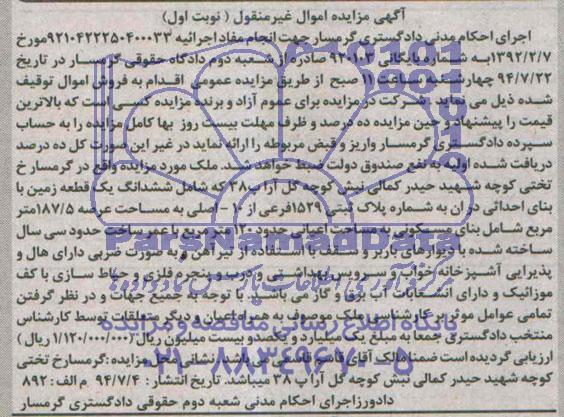 آگهی مزایده اموال غیرمنقول ( نوبت اول)
اجرای احکام مدنی دادگستری گرمسار جهت انجام مفاد اجرائیه ۹۲۱۰۴۲۲۲۵۰۴۰۰۰۳۳مورخ
۱۳۹۲/۲/۷به شماره بایگانی ۹۲۰۱۰۳ صادره از شعبه دوم دادگاه حقوقی گرمسار در تاریخ
۹۴/۷/۲۲ چهارشنبه ساعت ۱۱ صبح از طریق مزایده عمومی اقدام به فروش اموال توقیف
شده ذیل می نماید . شرکت در مزایده برای عموم آزاد و برنده مزایده کسی است که بالاترین
قیمت را پیشنهاد و حین مزایده ده درصد و ظرف مهلت بیست روز بها کامل مزایده را به حساب
سپرده دادگستری گرمسار واریز و قبض مربوطه را ارائه نماید در غیر این صورت کل ده درصد
دریافت شده اولیه به نفع صندوق دولت ضبط خواهد شد. ملک مورد مزایده واقع در گرمسار خ
تختی کوچه شهید حیدر کمالی نبش کوچه گل آرا پ۳۸ که شامل ششدانگ یک قطعه زمین با
بنای احداثی در آن به شماره پلاک ثبتی ۱۵۲۹فرعی از - اصلی به مساحت عرصه ۱۸۷/۵متر
مربع شامل بنای مسکونی به مساحت اعیانی حدود ۱۲۰ متر مربع با عمر ساخت حدود سی سال
ساخته شده با دیوارهای باربر و سقف با استفاده از تیرآهن و به صورت ضربی دارای هال و
پذیرایی آشپزخانه خواب و سرویس بهداشتی و درب و پنجره فلزی و حیاط سازی با کف
موزائیک و دارای انشعابات آب برق و گاز می باشد. با توجه به جمیع جهات و در نظر گرفتن
تمامی عوامل موثر بر کارشناسی ملک موصوف به همراه اعیان و دیگر متعلقات توسط کارشناس
منتخب دادگستری جمعا به مبلغ یک میلیارد و یکصدو بیست میلیون ریال(۱/۱۲۰/۰۰۰/۰۰۰ ریال )
ارزیابی گردیده است ضمنا مالک آقای قاسم قاسمی می باشد. نشانی محل مزایده :گرمسارخ تختی
کوچه شهید حیدر کمالی نبش کوچه گل آرا پ ۳۸ میباشد. تاریخ انتشار : ۹۴/۷/۴ م الف: ۸۹۲
دادورز اجرای احکام مدنی شعبه دوم حقوقی دادگستری گرمسار
ParsNamadData
مرکز فرآوری اطلاعات پارس نماد داده ها
پایگاه اطلاع رسانی مناقصه و مزایده
۰۲۱-۸۸۳۴۹۶۷۰-۵